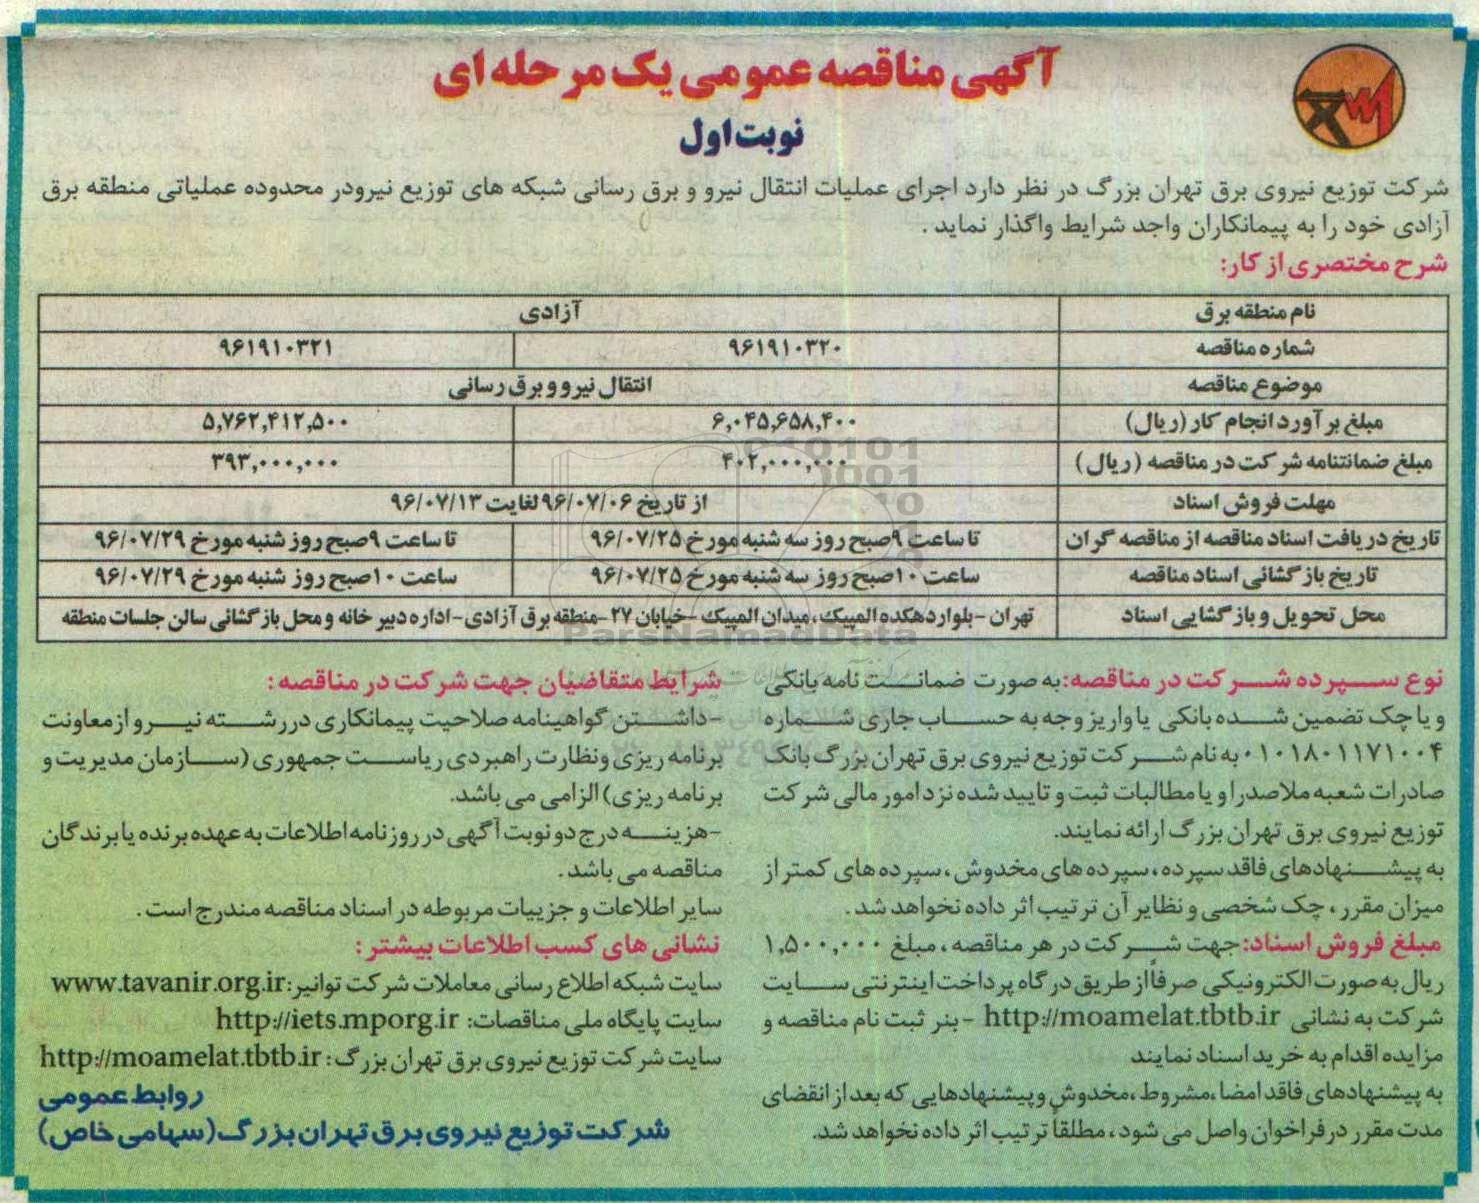 آگهی مناقصه عمومی یک مرحله ای
نوبت اول
شرکت توزیع نیروی برق تهران بزرگ در نظر دارد اجرای عملیات انتقال نیرو و برق رسانی شبکه های توزیع نیرودر محدوده عملیاتی منطقه برق
آزادی خود را به پیمانکاران واجد شرایط واگذار نماید .
شرح مختصری از کار:
نام منطقه برق آزادی
شماره مناقصه ۹۶۱۹۱۰۳۲۰ ۹۶۱۹۱۰۳۲۱
موضوع مناقصه انتقال نیرو و برق رسانی
مبلغ برآورد انجام کار (ریال) ۶,۰۴۵,۶۵۸,۴۰۰ ۵,۷۶۲,۴۱۲,۵۰۰
مبلغ ضمانتنامه شرکت در مناقصه (ریال) ۴۰۲,۰۰۰,۰۰۰ ۳۹۳,۰۰۰,۰۰۰
مهلت فروش اسناد از تاریخ ۹۶/۰۷/۰۶ لغایت ۹۶/۰۷/۱۳
تاریخ دریافت اسناد مناقصه از مناقصه گران تا ساعت ۹صبح روز سه شنبه مورخ ۹۶/۰۷/۲۵ تا ساعت ۹صبح روز شنبه مورخ ۹۶/۰۷/۲۹
تاریخ بازگشائی اسناد مناقصه ساعت ۱۰صبح روز سه شنبه مورخ ۹۶/۰۷/۲۵ ساعت ۱۰صبح روز شنبه مورخ ۹۶/۰۷/۲۹
محل تحویل و بازگشایی اسناد تهران -بلوار دهکده المپیک، میدان المپیک -خیابان ۲۷ -منطقه برق آزادی-اداره دبیر خانه و محل بازگشائی سالن جلسات منطقه
ParsNamadData
نوع سپرده شرکت در مناقصه: به صورت ضمانت نامه بانکی
و یا چک تضمین شده بانکی یا واریز وجه به حساب جاری شماره
۰۱۰۱۸۰۱۱۷۱۰۰۴ به نام شرکت توزیع نیروی برق تهران بزرگ بانک
صادرات شعبه ملاصدرا و یا مطالبات ثبت و تایید شده نزد امور مالی شرکت
توزیع نیروی برق تهران بزرگ ارائه نمایند.
به پیشنهادهای فاقد سپرده، سپرده های مخدوش، سپرده های کمتر از
میزان مقرر، چک شخصی و نظایر آن ترتیب اثر داده نخواهد شد.
مبلغ فروش اسناد: جهت شرکت در هر مناقصه، مبلغ ۱,۵۰۰,۰۰۰
ریال به صورت الکترونیکی صرفاً از طریق درگاه پرداخت اینترنتی سایت
شرکت به نشانی http://moamelat.tbtb.ir -بنر ثبت نام مناقصه و
مزایده اقدام به خرید اسناد نمایند
به پیشنهادهای فاقد امضا، مشروط، مخدوش و پیشنهادهایی که بعد از انقضای
مدت مقرر در فراخوان واصل می شود، مطلقاً ترتیب اثر داده نخواهد شد.
شرایط متقاضیان جهت شرکت در مناقصه:
-داشتن گواهینامه صلاحیت پیمانکاری دررشته نیرو از معاونت
برنامه ریزی ونظارت راهبردی ریاست جمهوری (سازمان مدیریت و
برنامه ریزی) الزامی می باشد.
-هزینه درج دو نوبت آگهی در روزنامه اطلاعات به عهده برنده یا برندگان
مناقصه می باشد.
سایر اطلاعات و جزییات مربوطه در اسناد مناقصه مندرج است.
نشانی های کسب اطلاعات بیشتر:
سایت شبکه اطلاع رسانی معاملات شرکت توانیر: www.tavanir.org.ir
سایت پایگاه ملی مناقصات: http://iets.mporg.ir
سایت شرکت توزیع نیروی برق تهران بزرگ: http://moamelat.tbtb.ir
روابط عمومی
شرکت توزیع نیروی برق تهران بزرگ (سهامی خاص)